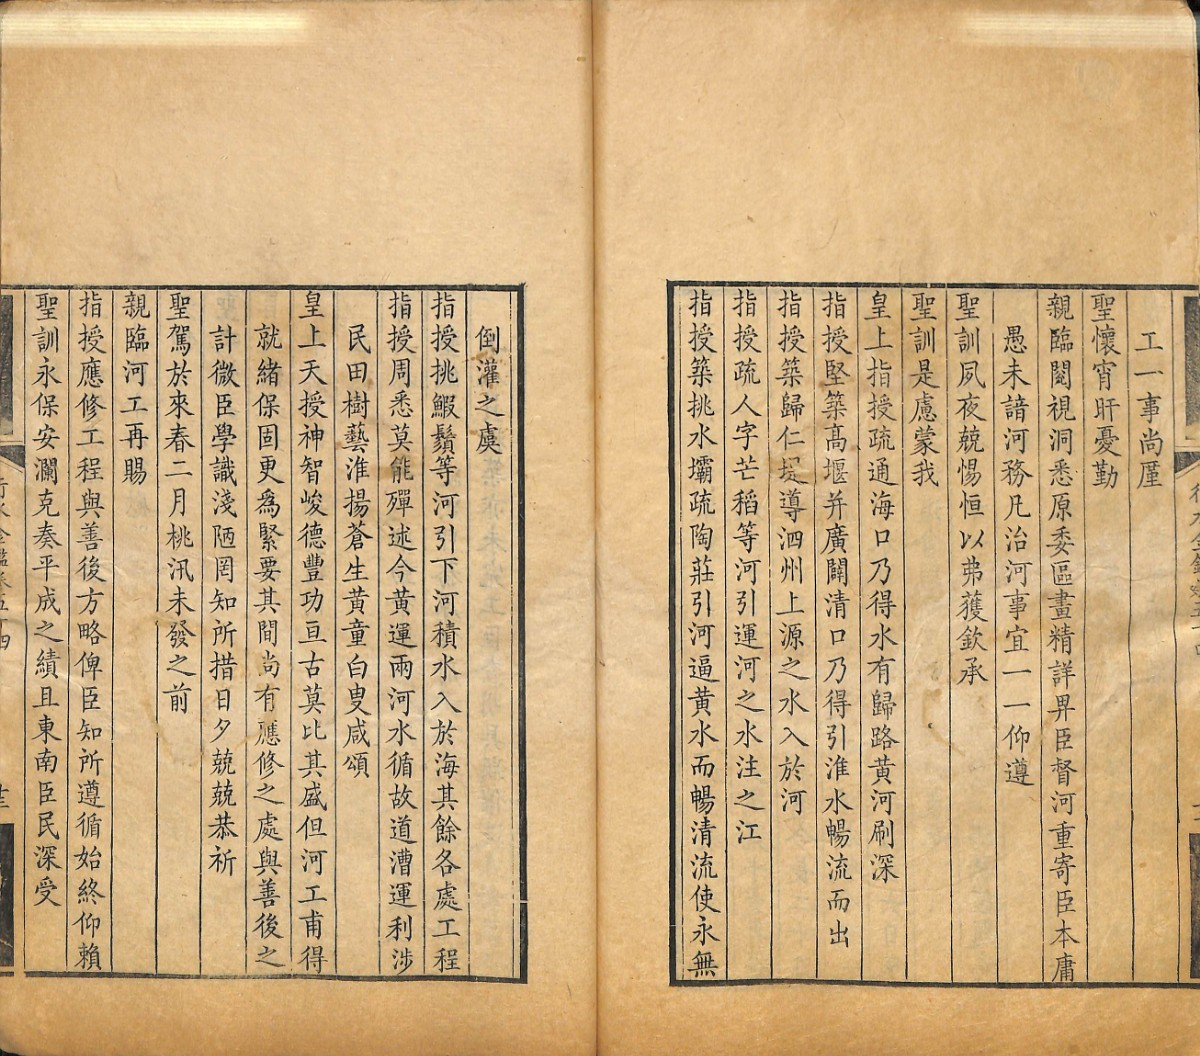 工一事尚厪
聖懷宵旰憂勤
親臨閱視洞悉原委區畫精詳畀臣督河重寄臣本庸
愚未諳河務凡治河事宜一一仰遵
聖訓夙夜兢惕恒以弗獲欽承
聖訓是慮蒙我
皇上指授疏通海口乃得水有歸路黃河刷深
指授堅築高堰并廣闢清口乃得引淮水暢流而出
指授築歸仁堤導泗州上源之水入於河
指授疏人字芒稻等河引運河之水注之江
指授築挑水壩疏陶莊引河逼黃水而暢清流使永無
倒灌之虞
指授挑鰕鬚等河引下河積水入於海其餘各處工程
指授周悉莫能殫述今黃運兩河水循故道漕運利涉
民田樹藝淮揚蒼生黃童白叟咸頌
皇上天授神智峻德豐功亘古莫比其盛但河工甫得
就緒保固更爲緊要其間尚有應修之處與善後之
計微臣學識淺陋罔知所措日夕兢兢恭祈
聖駕於來春二月桃汛未發之前
親臨河工再賜
指授應修工程與善後方略俾臣知所遵循始終仰賴
聖訓永保安瀾克奏平成之績且東南臣民深受
行水金鑑卷五十四